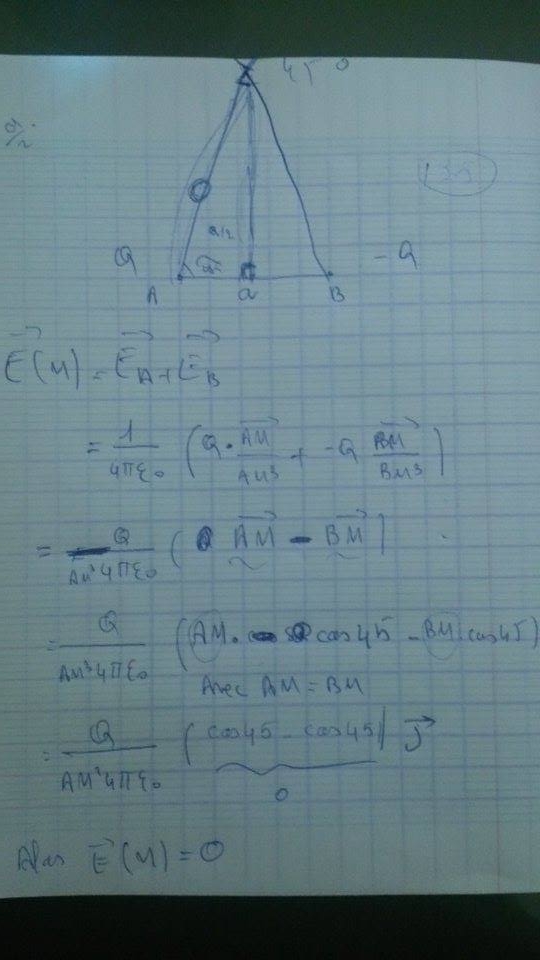 45°
Q
a/2
45
- Q
A
a
B
E⃗(M) = E⃗A + E⃗B
= 1/4πε₀ (Q · AM⃗/AM³ + -Q BM⃗/BM³)
= Q/AM³4πε₀ (AM⃗ - BM⃗)
= Q/AM³4πε₀ (AM · cos 45 - BM cos 45)
Avec AM = BM
= Q/AM²4πε₀ (cos 45 - cos 45) J⃗
0
Alors E⃗(M) = 0